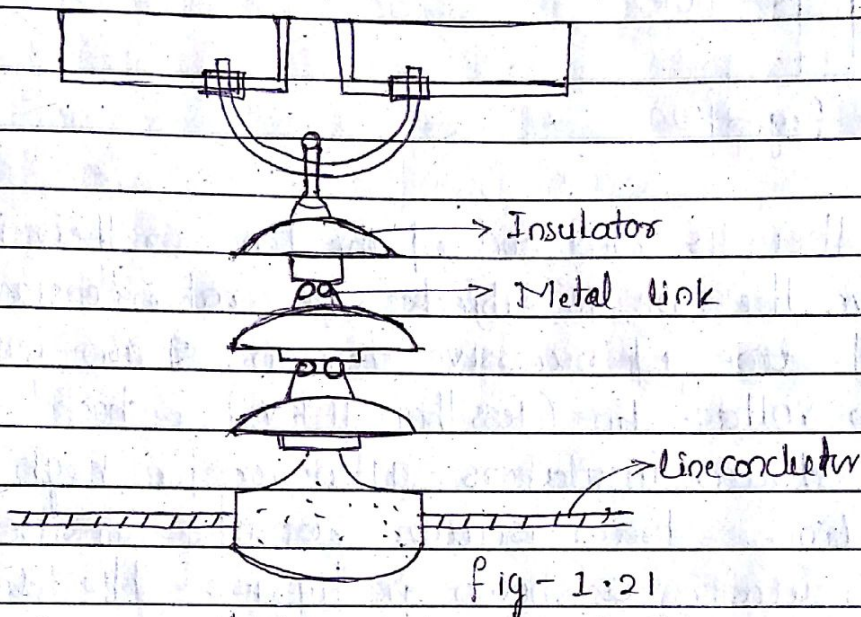 Insulator
Metal link
Lineconductor
fig-1:21